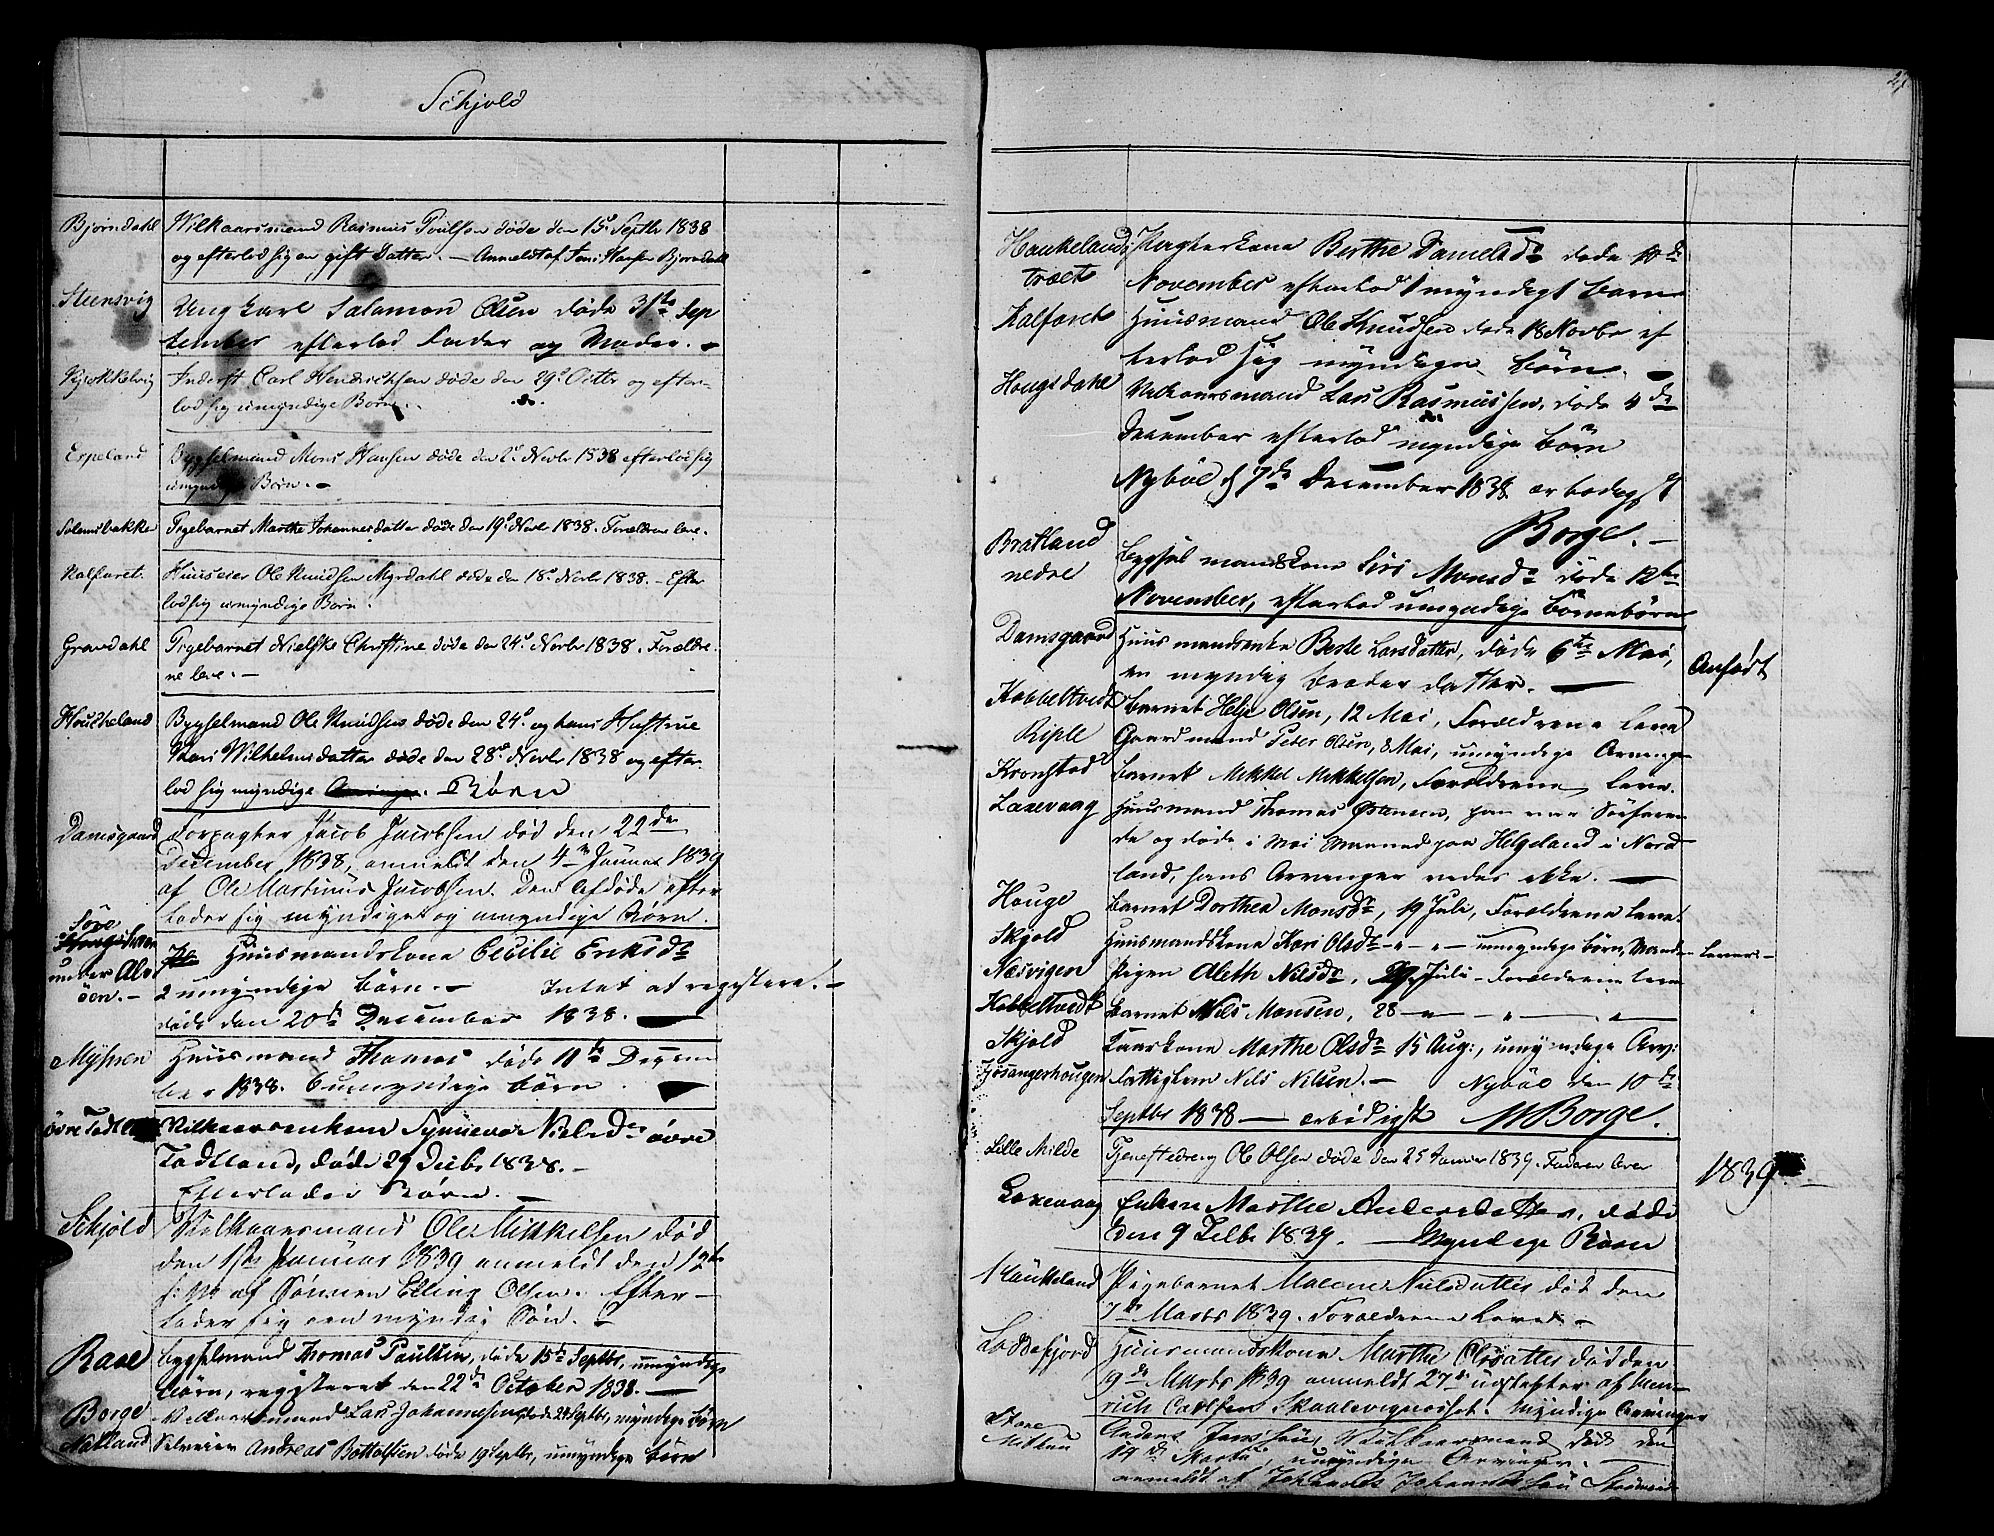 Schjold
Bjørndahl Wilkaarsmand Rasmus Poulsen døde den 15d Septbr 1838
og efterlod sig en gift Datter. – Anmeldt af Jens Hansen Bjørndahl
Steensvig Ungkarl Salamon Olsen døde 31te Sep
tember efterlod Fader og Moder. –
Kjøkkelvig Inderst Carl Hendrichsen døde den 29d Octbr og efter-
lod sig umyndige Børn.
Espeland Bygselmand Mons Hansen døde den 2d Novbr 1838 efterlod sig
umyndige Børn. –
Solemsbakke Pigebarnet Marthe Johannesdatter døde den 19d Novbr 1838. Forældrene leve.
Kalfaret. Huuseier Ole Knudsen Myrdahl døde den 18d Novbr 1838. – Efter
lod sig umyndige Børn.
Gravdahl Pigebarnet Nielske Christine døde den 24d Novbr 1838. Forældre
ne leve. –
Houcheland Bygselmand Ole Knudsen døde den 24d og hans Hustrue
Kari Wilhelmsdatter døde den 28d Novbr 1838 og efter-
lod sig myndige Børn
Damsgaard Forpagter Jacob Jacobsen død den 22de
December 1838, anmeldt den 4de Januar 1839
af Ole Martinus Jacobsen. Den Afdøde efter
lader sig myndige og umyndige Børn.
Søre
under Alv
øen. – Huusmandskone Cecilie Eriksdr
2 umyndige børn. – Intet at registere. –
døde den 20de December 1838.
Myhren Huusmand Thomas døde 11te Decem
ber 1838. 6 umyndige børn.
øvre Tadland Vilkaarsenken Synneva Nielsdr øvre
Tadland, døde 29 Decbr 1838. –
Efterlader Børn. –
Schjold Vilkaarsmand Ole Mikkelsen død
den 1ste Januar 1839 anmeldt den 12te
s: M af Sønnen Elling Olsen. Efter –
lader sig een myndig Søn. –
Raae bygselmand Thomas Paulsen, døde 15de Septbr, umyndige
børn, registeret den 22de October 1838. –
Borge Velkaarsmand Lars Johannesen døde 24 Septbr, myndige børn
Natland Selveier Andreas Bottolfsen døde 19 Septbr, umyndige børn
27
Haukelands
træet Pagterkone Berthe Danielsdr døde 10de
November efterlod 1 myndigt barn
Kalfaret Huusmand Ole Knudsen døde 18 Novbr ef
terlod sig myndige børn. –
Hougsdahl Velkaarsmand Lars Rasmussen, døde 4de
December efterlod myndige børn
Nybøe d 7de December 1838 ærbødigst
Borge. –
Bratland
nedre bygselmandskone Siri Monsdr døde 12te
November, efterlod umyndige børnebørn
Damsgaard Huusmandsenke Berte Larsdatter, døde 6te Mai,
en myndig broder datter. – Anført
Kobbeltvedt barnet Helje Olsen, 12 Mai, Forældrene leve
Riple Gaardmand Peter Olsen, 8 Mai, umyndige Arvinge
Kronstad barnet Mikkel Mikkelsen, Forældrene leve.
Laxevaag Huusmand Thomas Hansen, han var Søfaren
de og døde i Mai Maaned paa Helgeland i Nord
land, hans Arvinger vedes ikke. –
Houge barnet Dorthea Monsdr, 19 Juli, Forældrene leve.
Skjold Huusmandskone Kari Olsdr – " – " – umyndige børn, Manden lever. –
Næsvigen Pigen Aleth Nilsdr, 29 Juli – forældrene leve
Kobbeltvedt barnet Nils Monsen, 28 – " – " – "
Skjold Kaarskone Marthe Olsdr 15 Aug:, umyndige Arv:
Fjøsangerhougen Fattiglem Nils Nilsen. – Nybøe den 10de
Septbr 1838 – ærbødigst M Borge.
Lille Milde Tjenestedreng Ole Olsen døde den 25 Januar 1839. Faderen lever 1839
Laxevaag Enken Marthe Andersdatter, døde
den 9 Febr 1839. – Myndige Børn
Haukeland Pigebarnet Malene Nielsdatter død den
7de Marts 1839. Forældrene Lever –
Loddefjord Huusmandskone Marthe Olsdatter død den
9de Marts 1839 anmeldt 27de udsteftes af Hen-
rich Carlsen Skaalevignæsset. Myndige Arvinger
Store
Milde Anders Jansen, Vilkaarsmand død den
19de Marts, umyndige Arvinger. –
anmeldt af Johannes Johannessen